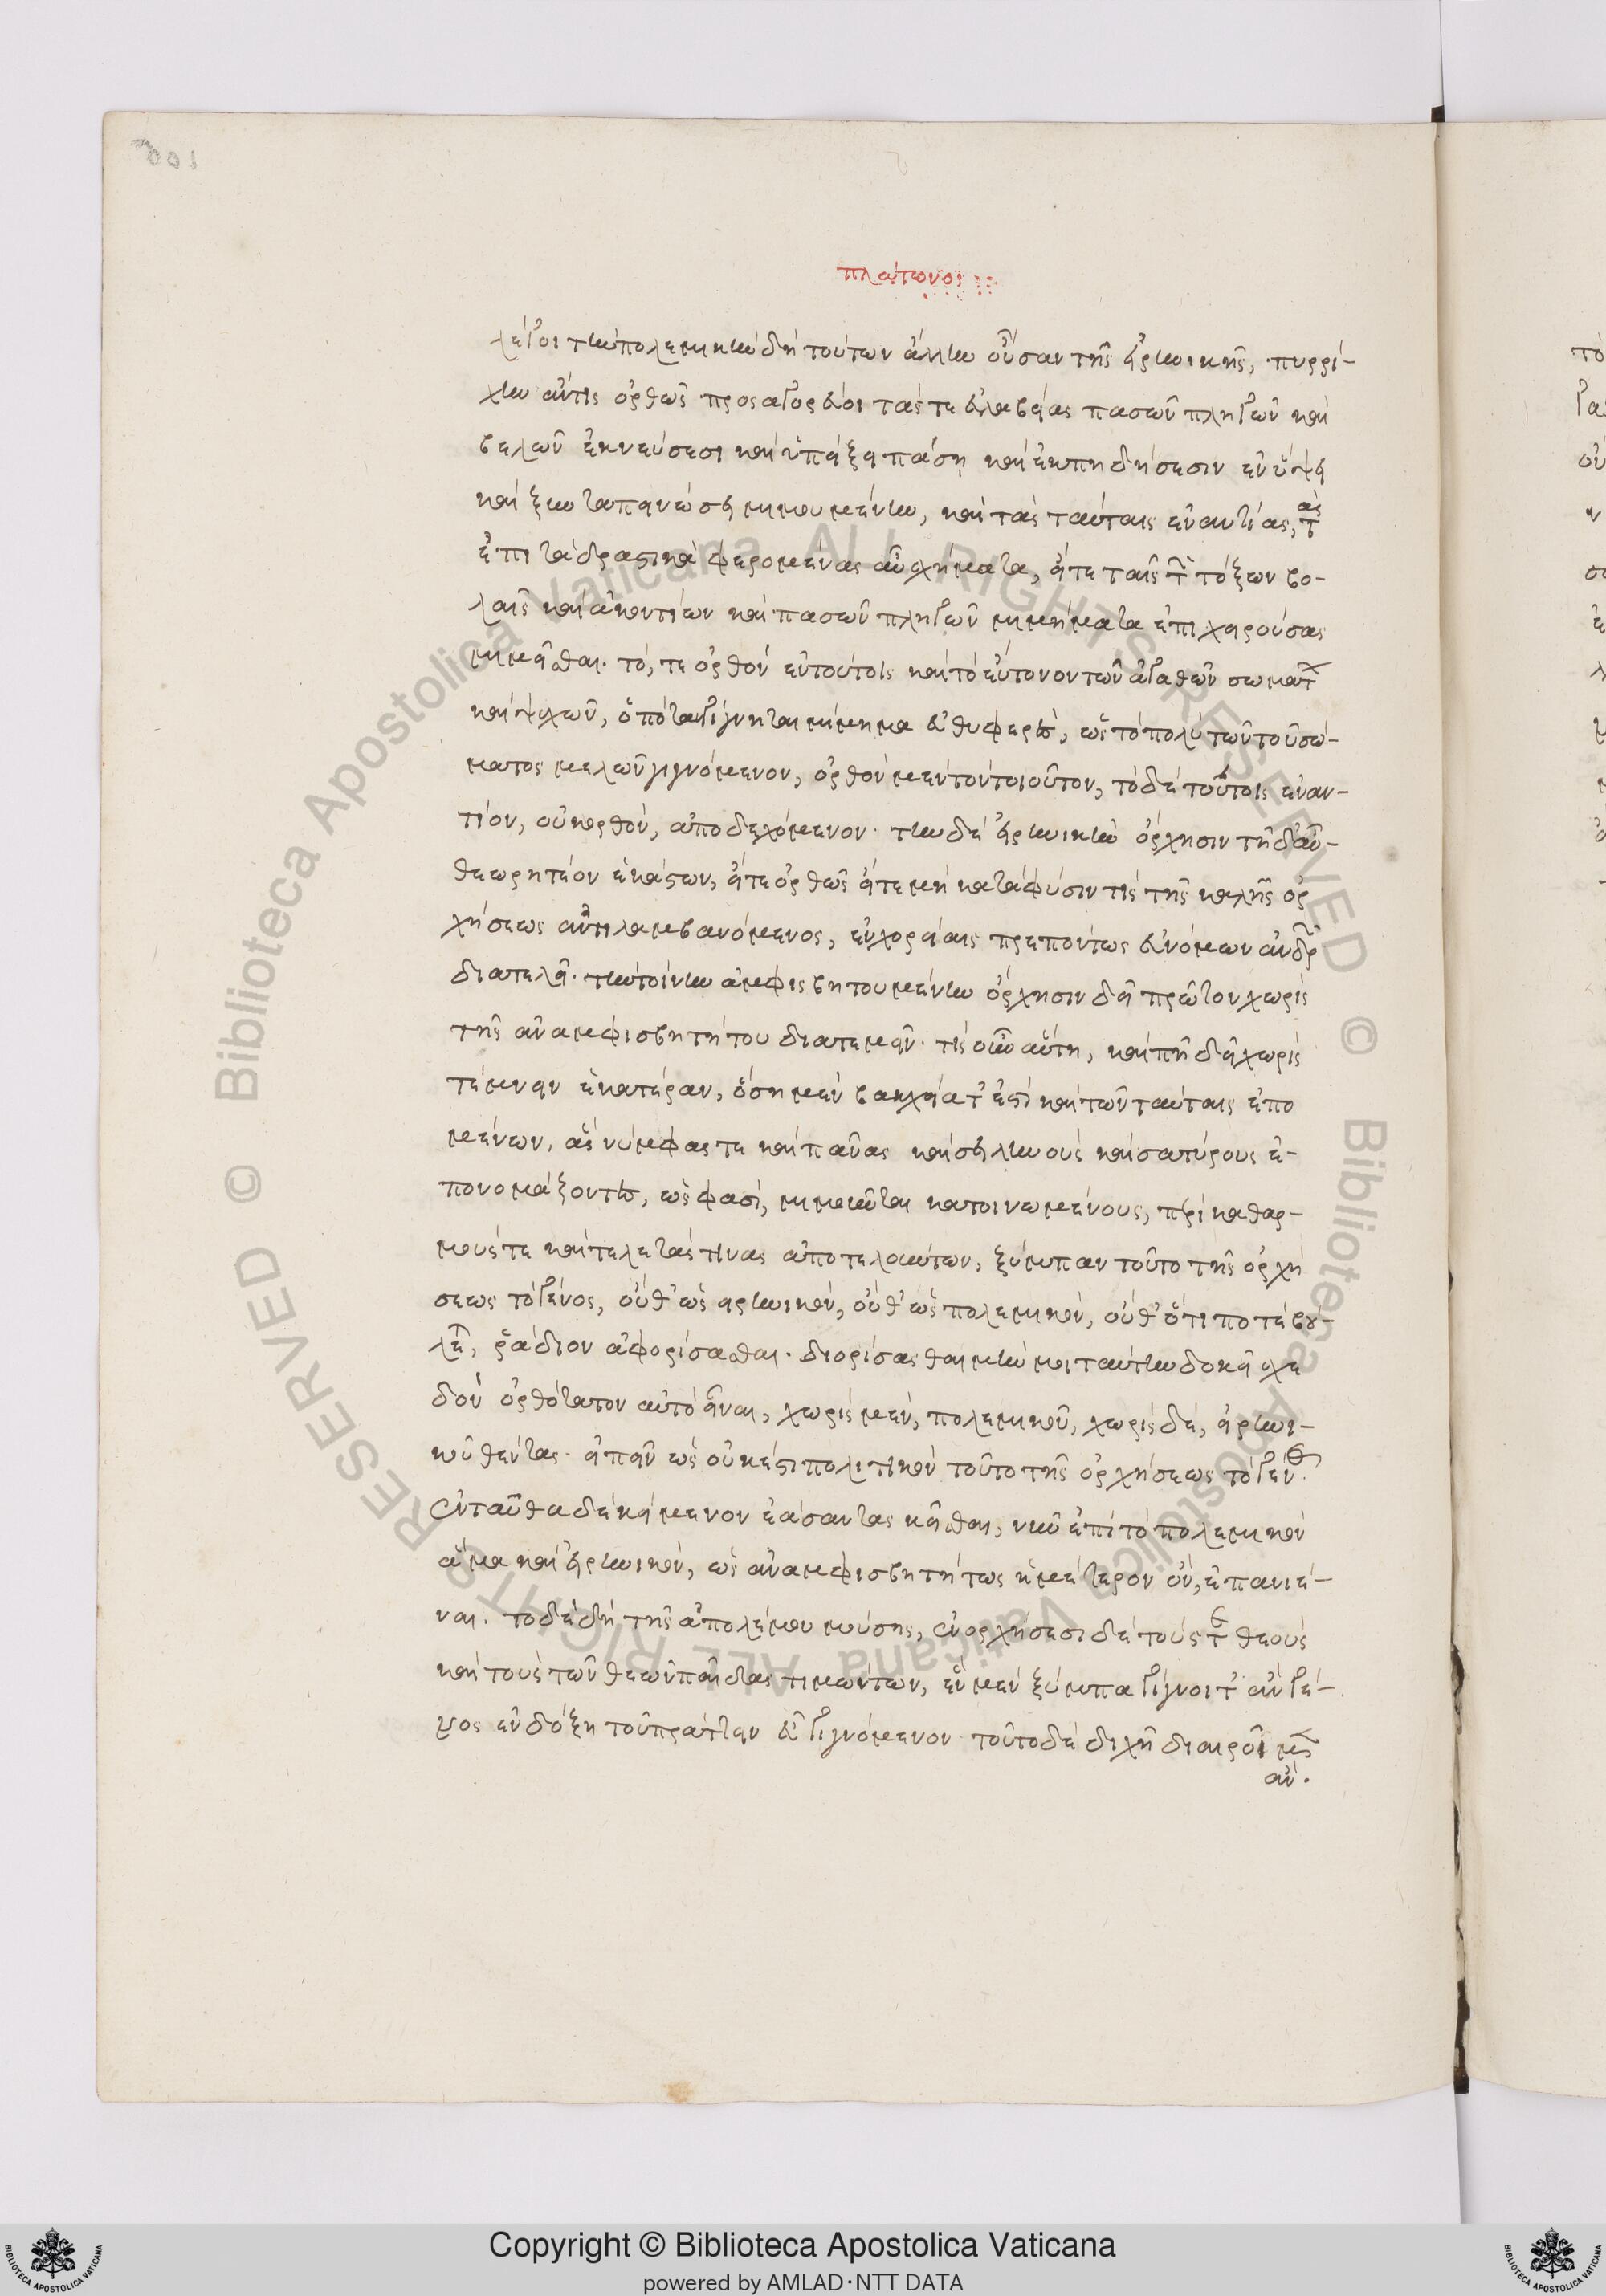 πλάτωνος
λέγοι τὴν πολεμικὴν δὴ τούτων ἄλλην οὖσαν τῆς εἰρηνικῆς, πυρρί-
χην ἄν τις ὀρθῶς προσαγορεύοι τάς τε εὐλαβείας πασῶν πληγῶν καὶ
βελῶν ἐκνεύσεσι καὶ ὑπείξει πάσῃ καὶ ἐκπηδήσεσιν ἐν ὕψει
καὶ ξὺν ταπεινώσει μιμουμένην, καὶ τὰς ταύταις ἐναντίας, τὰς
ἐπὶ τὰ δραστικὰ φερομένας αὖ σχήματα, ἔν τε ταῖς τῶν τόξων βο-
λαῖς καὶ ἀκοντίων καὶ πασῶν πληγῶν μιμήματα ἐπιχειρούσας
μιμεῖσθαι. τό, τε ὀρθὸν ἐν τούτοις καὶ τὸ εὔτονον τῶν ἀγαθῶν σωμάτων
καὶ ψυχῶν, ὁπόταν γίγνηται μίμημα εὐθυφερὲς, ὡς τὸ πολὺ τῶν τοῦ σώ-
ματος μελῶν γιγνόμενον, ὀρθὸν μὲν τὸν τοιοῦτον, τὸ δὲ τούτοις ἐναν-
τίον, οὐκ ὀρθὸν, ἀποδεχόμενον. τὴν δὲ εἰρηνικὴν ὄρχησιν τῇδ' αὖ
θεωρητέον ἑκάστων, εἴτε ὀρθῶς εἴτε μὴ κατὰ φύσιν τὶς τῆς καλῆς ὀρ
χήσεως ἀντιλαμβανόμενος, ἐν χορείαις πρεπόντως εὐνόμων ἀνδρῶν
διατελεῖ. τὴν τοίνυν ἀμφισβητουμένην ὄρχησιν δεῖ πρῶτον χωρὶς
τῆς ἀναμφισβητήτου διατεμεῖν. τίς οὖν αὕτη, καὶ πῆ δεῖ χωρὶς
τέμνειν ἑκατέραν, ὅση μὲν βακχεία τ' ἐστὶ καὶ τῶν ταύταις ἑπο
μένων, ἃς νύμφας τε καὶ πᾶνας καὶ σειληνοὺς καὶ σατύρους ἐ-
πονομάζοντες, ὥς φασι, μιμοῦνται κατοινωμένους, περὶ καθαρ-
μούς τε καὶ τελετάς τινας ἀποτελούντων, ξύμπαν τοῦτο τῆς ὀρχή
σεως τὸ γένος, οὔθ' ὡς εἰρηνικὸν, οὔθ' ὡς πολεμικὸν, οὔθ' ὅτι ποτὲ βού-
λεται, ῥᾴδιον ἀφορίσασθαι. διορίσασθαι μὴν μοι ταύτην δοκεῖ σχε
δὸν ὀρθότατον αὐτὸ εἶναι, χωρὶς μὲν, πολεμικοῦ, χωρὶς δὲ, εἰρηνι-
κοῦ θέντας. εἰπεῖν ὡς οὐκ ἔστι πολιτικὸν τοῦτο τῆς ὀρχήσεως τὸ γένος.
ἐνταῦθα δὲ κείμενον ἐάσαντας κεῖσθαι, νῦν ἐπὶ τὸ πολεμικὸν
ἅμα καὶ εἰρηνικὸν, ὡς ἀναμφισβητήτως ἡμέτερον ὂν, ἐπανιέ-
ναι. τὸ δὲ δὴ τῆς ἀπολέμου μούσης, ἐν ὀρχήσεσι δὲ τούς τε θεοὺς
καὶ τοὺς τῶν θεῶν παῖδας τιμώντων, ἓν μὲν ξύμπαν γίγνοιτ' ἂν γέ-
νος ἐν δόξῃ τοῦ πράττειν εὖ γιγνόμενον τοῦτο δὲ διχῆ διαιροῖμεν
ἄν.
Copyright © Biblioteca Apostolica Vaticana
powered by AMLAD·NTT DATA